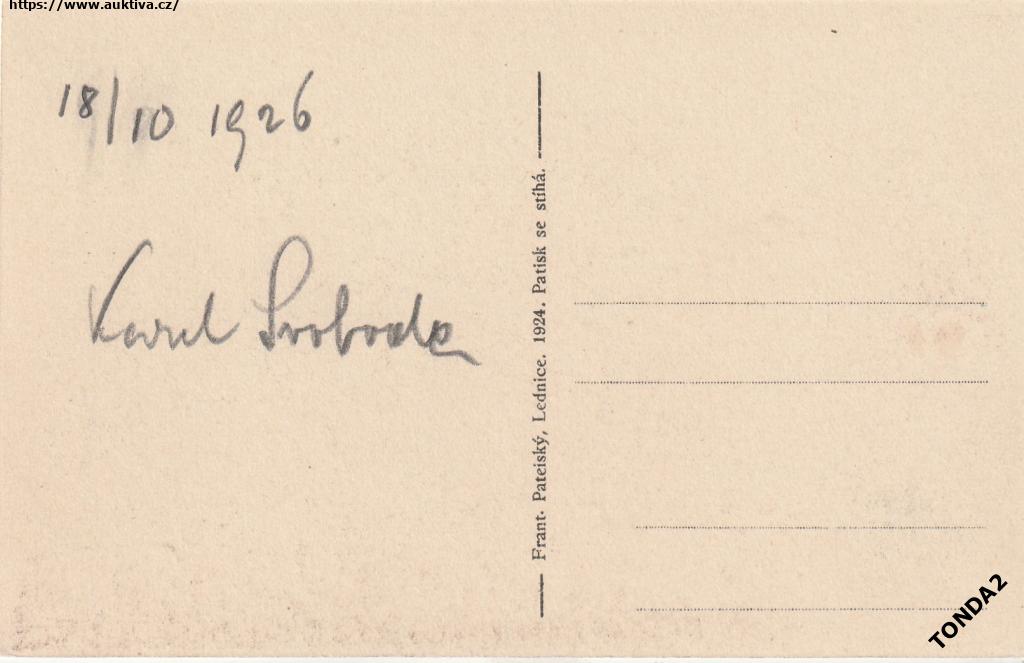 https://www.auktiva.cz/
18/10 1926
Karel Svoboda
Frant. Pateiský, Lednice. 1924. Patisk se stíhá.
TONDA2